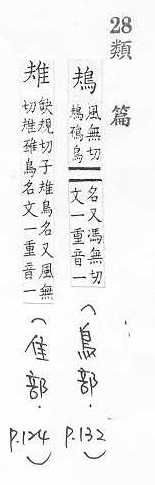 28 類篇
鳺 風無切
鳺鴀鳥
名又馮無切
文一重音一
(鳥部. P.132)
缺規切子鳥名又風無
切鳥名文一重音一
(隹部. P.124)